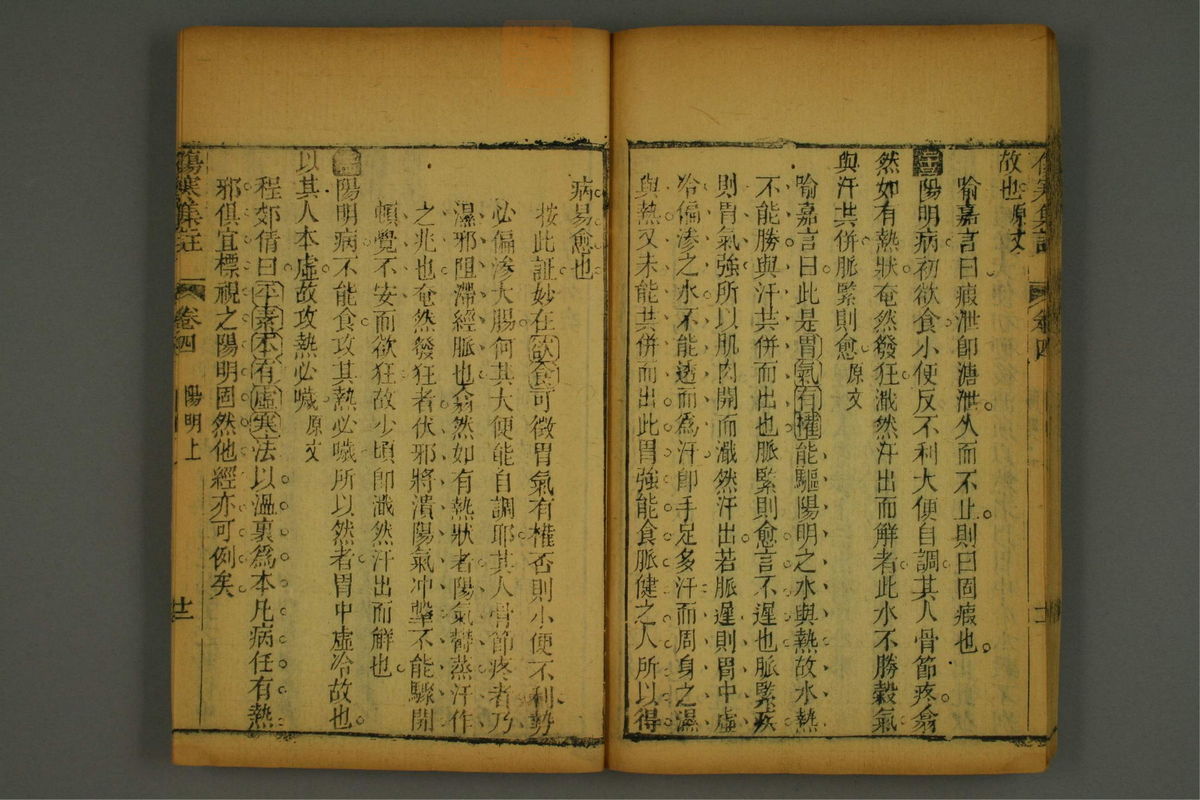 故也原文
喻嘉言曰瘕泄即溏泄久而不止則曰固瘕也
陽明病初欲食小便反不利大便自調其人骨節疼翕
然如有熱狀奄然發狂濈然汗出而觧者此水不勝穀氣
與汗共併脈緊則愈原文
喻嘉言曰此是胃氣有權能驅陽明之水與熱故水熱
不能勝與汗共併而出也脈緊則愈言不遲也脈緊疾
則胃氣強所以肌肉開而濈然汗出若脈遲則胃中虛
冷偏滲之水不能透而爲汗即手足多汗而周身之濕
與熱又未能共併而出此胃強能食脈健之人所以得
病易愈也
按此証妙在欲食可徵胃氣有權否則小便不利勢
必偏滲大腸何其大便能自調耶其人骨節疼者乃
濕邪阻滯經脈也翕然如有熱狀者陽氣鬱蒸汗作
之兆也奄然發狂者伏邪將潰陽氣冲擊不能驟開
頓覺不安而欲狂故少頃即濈然汗出而觧也
陽明病不能食攻其熱必噦所以然者胃中虛冷故也
以其人本虛故攻熱必噦原文
程郊倩曰平素本有虛寒法以溫裏爲本凡病任有熱
邪俱宜標視之陽明固然他經亦可例矣
傷寒集註
卷四
陽明上